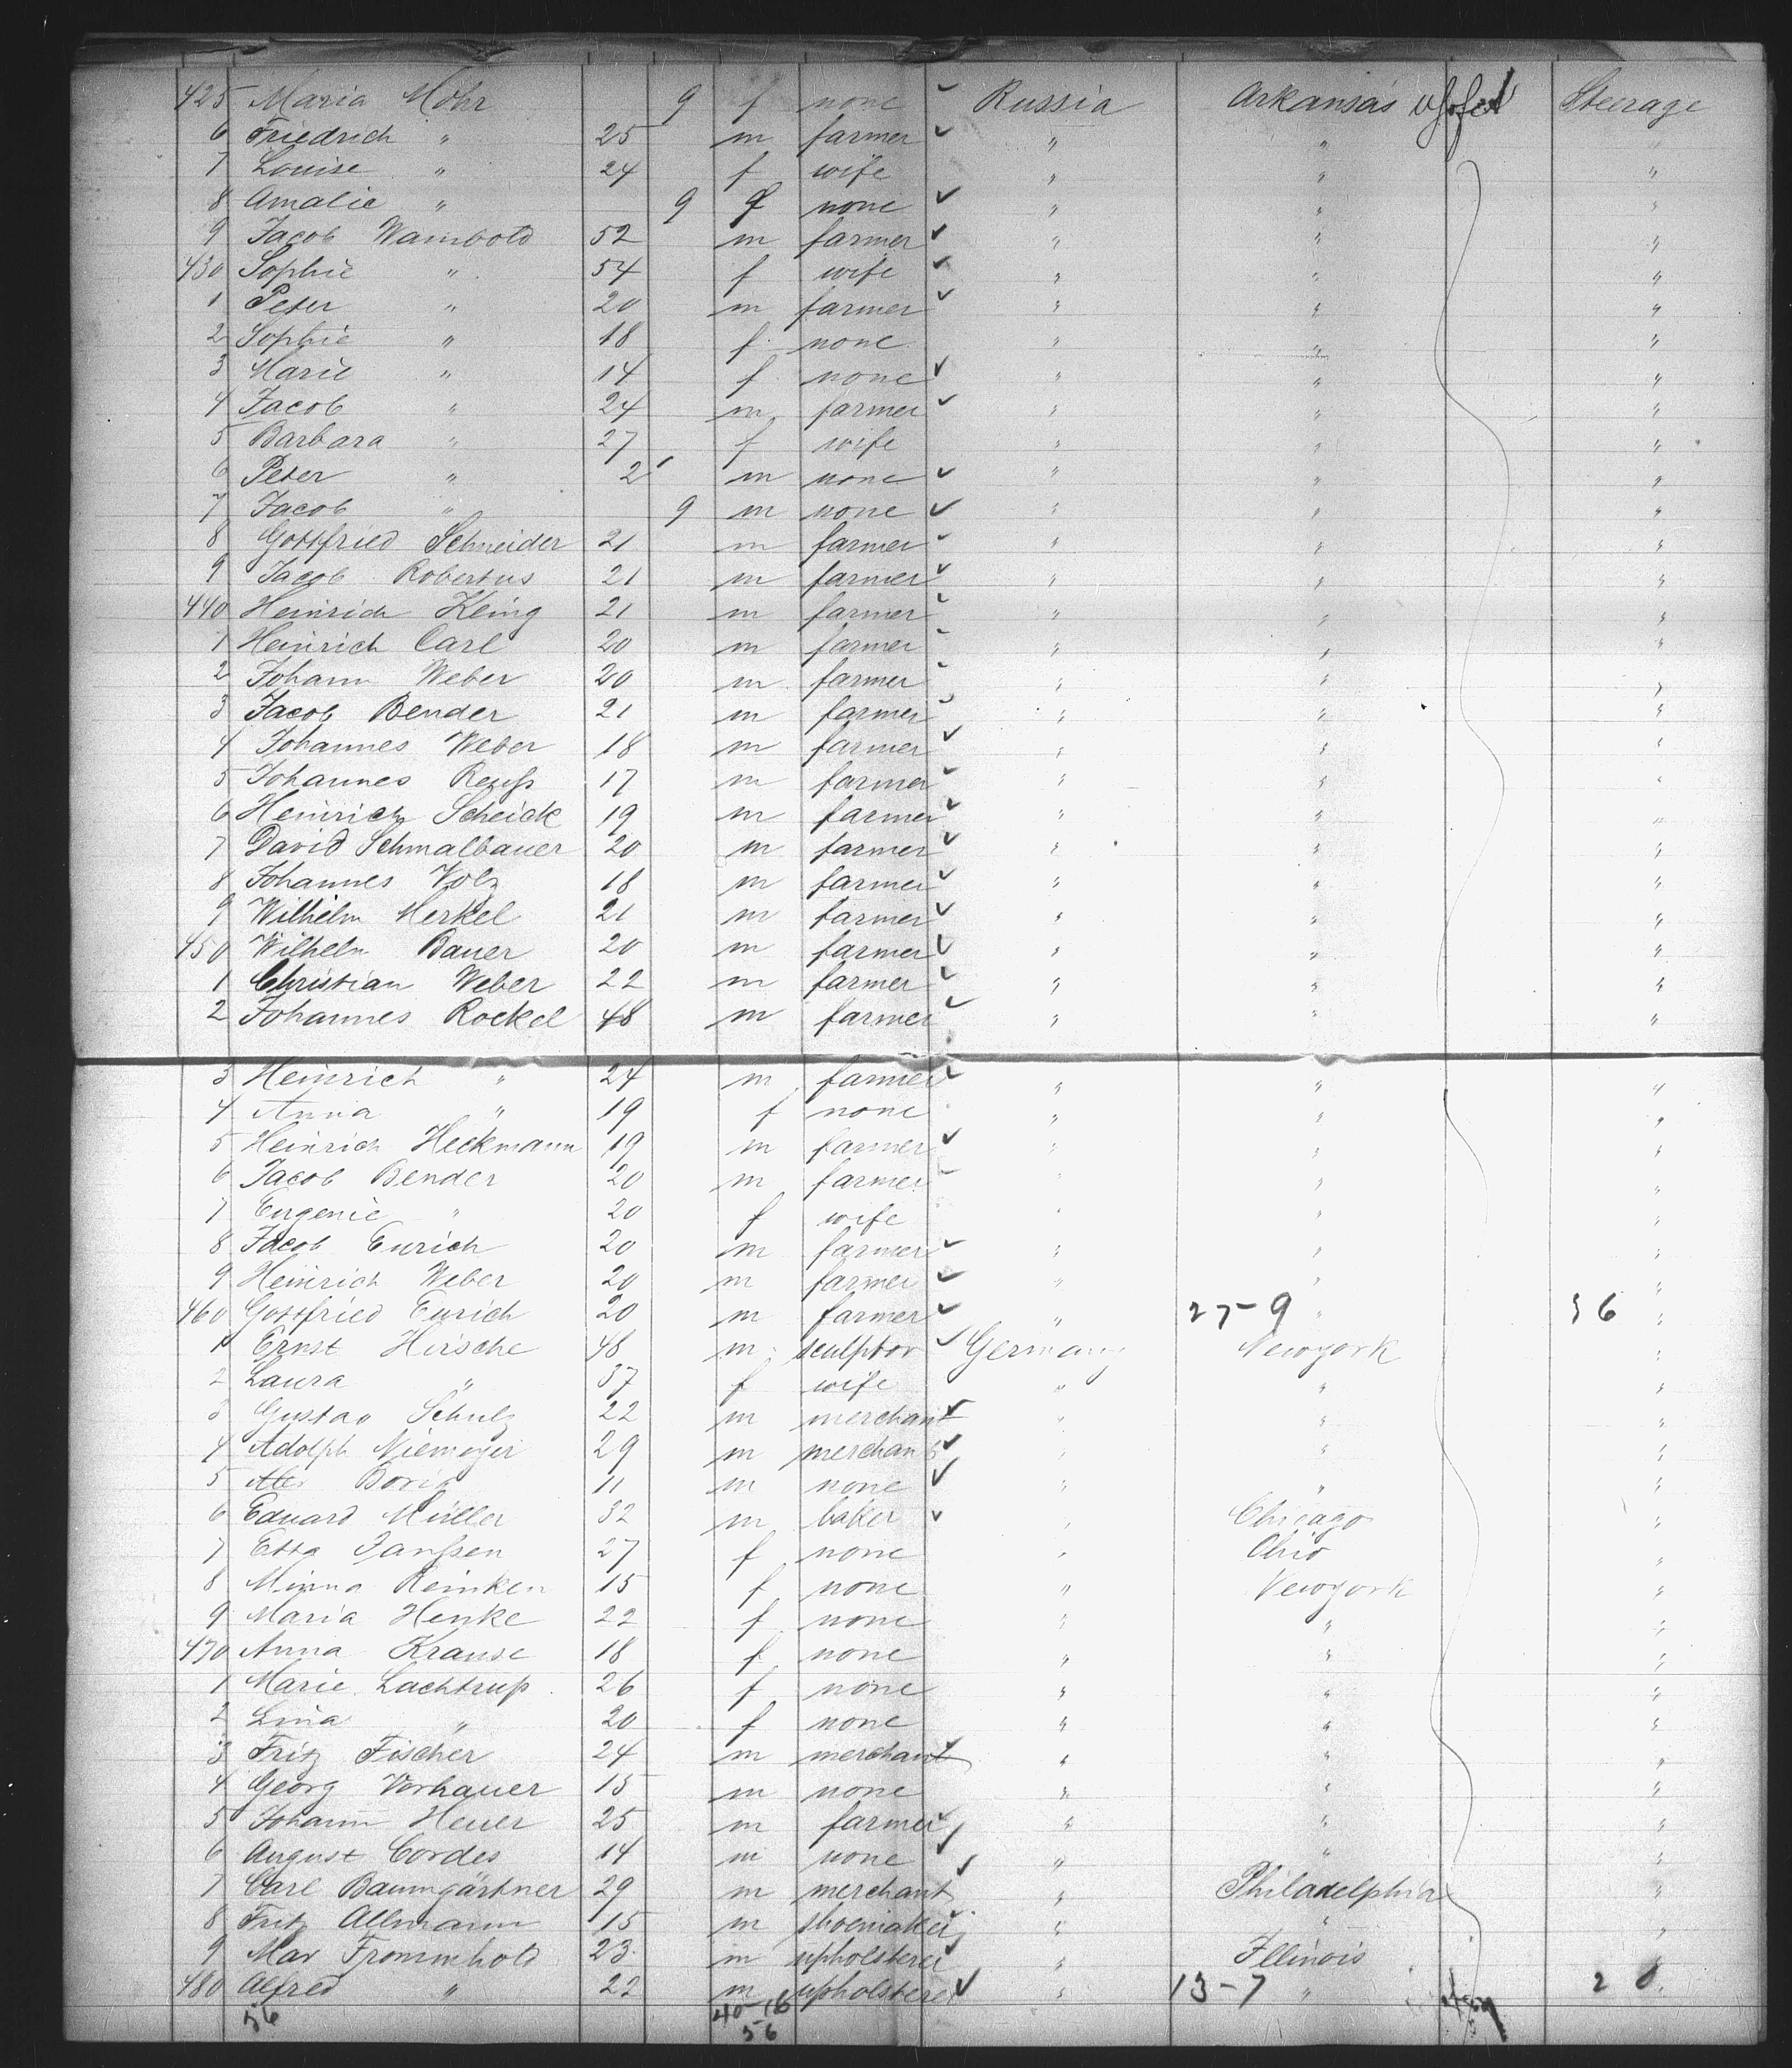 425 Maria Mohr 9 f none Russia Arkansas Steerage
6 Friedrich " 25 m farmer " " "
7 Louise " 24 f wife " " "
8 Amalie " 9 f none " " "
9 Jacob Wambold 52 m farmer " " "
430 Sophie " 54 f wife " " "
1 Peter " 20 m farmer " " "
2 Sophie " 18 f none " " "
3 Marie " 14 f none " " "
4 Jacob " 24 m farmer " " "
5 Barbara " 27 f wife " " "
6 Peter " 2 m none " " "
7 Jacob " 9 m none " " "
8 Gottfried Schneider 21 m farmer " " "
9 Jacob Robertus 21 m farmer " " "
440 Heinrich Kling 21 m farmer " " "
1 Heinrich Carl 20 m farmer " " "
2 Johann Weber 20 m farmer " " "
3 Jacob Bender 21 m farmer " " "
4 Johannes Weber 18 m farmer " " "
5 Johannes Reuß 17 m farmer " " "
6 Heinrich Scheick 19 m farmer " " "
7 David Schmalbauer 20 m farmer " " "
8 Johannes Volz 18 m farmer " " "
9 Wilhelm Merkel 21 m farmer " " "
450 Wilhelm Bauer 20 m farmer " " "
1 Christian Weber 22 m farmer " " "
2 Johannes Rockel 48 m farmer " " "
3 Heinrich " 24 m farmer " " "
4 Anna " 19 f none " " "
5 Heinrich Heckmann 19 m farmer " " "
6 Jacob Bender 20 m farmer " " "
7 Eugenie " 20 f wife " " "
8 Jacob Eurich 20 m farmer " " "
9 Heinrich Weber 20 m farmer " " "
460 Gottfried Eurich 20 m farmer " 27-9 " 36 "
1 Ernst Hirsche 48 m sculptor Germany Newyork "
2 Laura " 37 f wife " " "
3 Gustav Schulz 22 m merchant " " "
4 Adolph Niemeyer 29 m merchant " " "
5 11 m none " " "
6 Eduard Müller 32 m baker " Chicago "
7 Etta Janßen 27 f none " Ohio "
8 Minna Reinken 15 f none " Newyork "
9 Maria Henke 22 f none " " "
470 Anna Krause 18 f none " " "
1 Marie Lachtrup 26 f none " " "
2 Lina " 20 f none " " "
3 Fritz Fischer 24 m merchant " " "
4 Georg Vorhauer 15 m none " " "
5 Johann Heuer 25 m farmer " " "
6 August Cordes 14 m none " " "
7 Carl Baumgärtner 29 m merchant " Philadelphia "
8 Fritz Allmann 15 m shoemaker " " "
9 Max Frommhold 23 m upholsterer " Illinois "
480 Alfred " 22 m upholsterer " 13-7 " 20
56 40-16
56